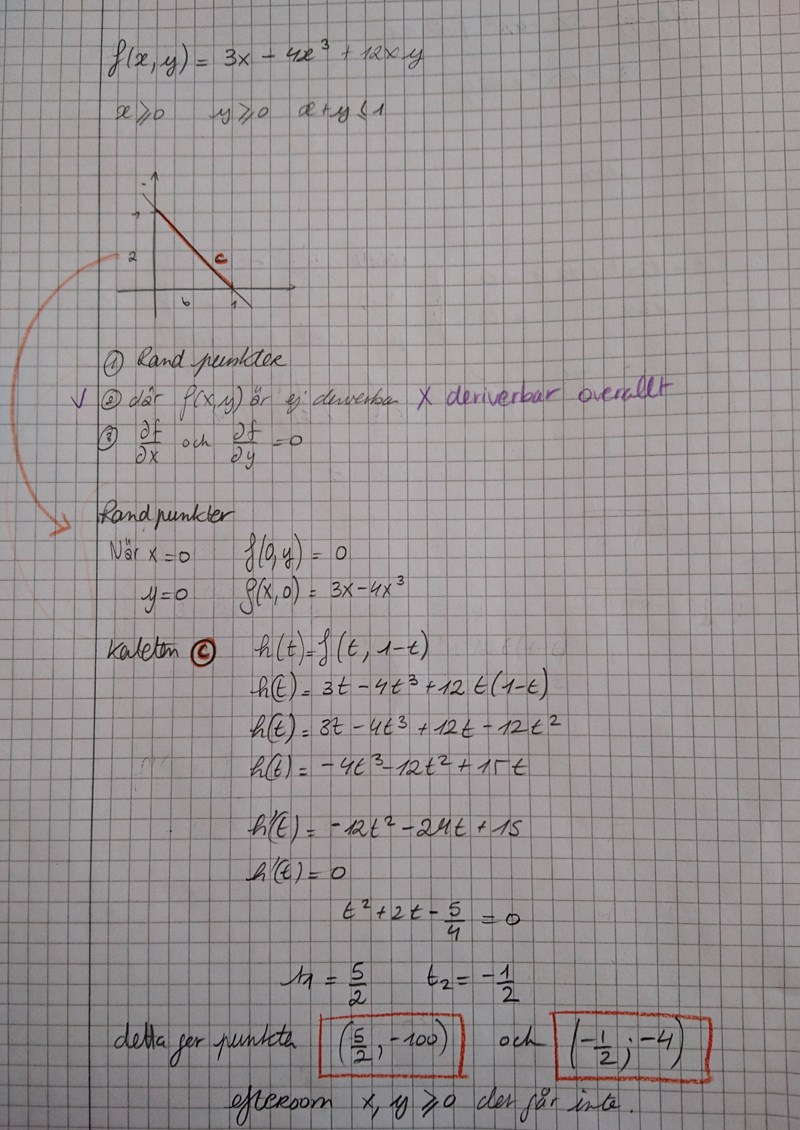 f(x,y) = 3x - 4x³ + 12xy
x ⩾ 0 y ⩾ 0 x+y ≤ 1
1
2 c
b 1
① Randpunkter
√ ② där f(x,y) är ej deriverbar X deriverbar overallt
③ ∂f/∂x och ∂f/∂y = 0
Randpunkter
När x = 0 f(0,y) = 0
y = 0 f(x,0) = 3x - 4x³
Kateten ⓒ h(t) = f(t, 1-t)
h(t) = 3t - 4t³ + 12t(1-t)
h(t) = 3t - 4t³ + 12t - 12t²
h(t) = -4t³ - 12t² + 15t
h'(t) = -12t² - 24t + 15
h'(t) = 0
t² + 2t - 5/4 = 0
t1 = 5/2 t₂ = -1/2
detta ger punkta (5/2, -100) och (-1/2; -4)
eftersom x, y ⩾ 0 det går inte.